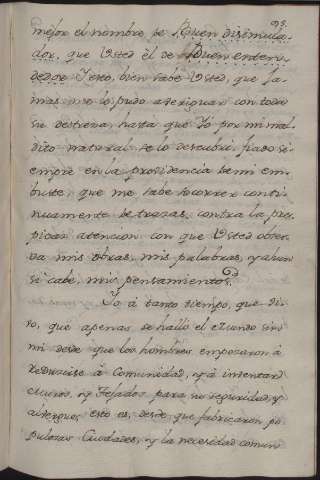 95.
mejor el nombre de Buen disimula-
dor, que Usted èl de Buen enten-
dedor. Y esto, bien sabe Usted, que ja-
mas me lo pudo averiguar con toda
su destreza, hasta que Yo por mi mal-
dito natural se lo descubrì, fiado si-
empre en la providencia de mi em-
buste, que me sabe socorrer conti-
nuamente de trazas, contra la pers-
picaz atencion con que Usted obser-
va mis obras, mis palabras, y aun
si cabe, mis pensamientos.
Yo à tanto tiempo, que di-
ro, que apenas se hallò el Mundo sin
mi desde que los hombres empezaron à
reducirse à Comunidad, y à intentar
muros, y Tejados, para su seguridad, y
albergue; esto es, desde que fabricaron po-
pulosas Ciudades, y la necesidad comun